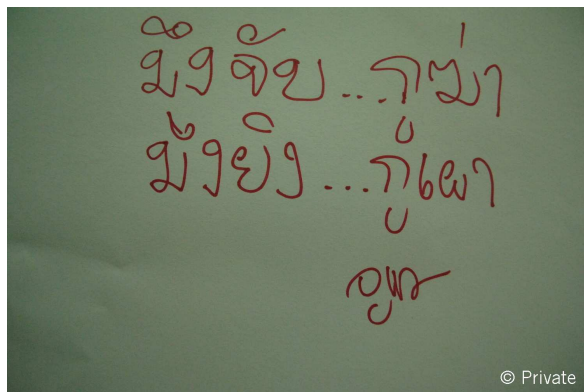 มึงจับ...กูฆ่า
มึงยิง...กูเผา
© Private